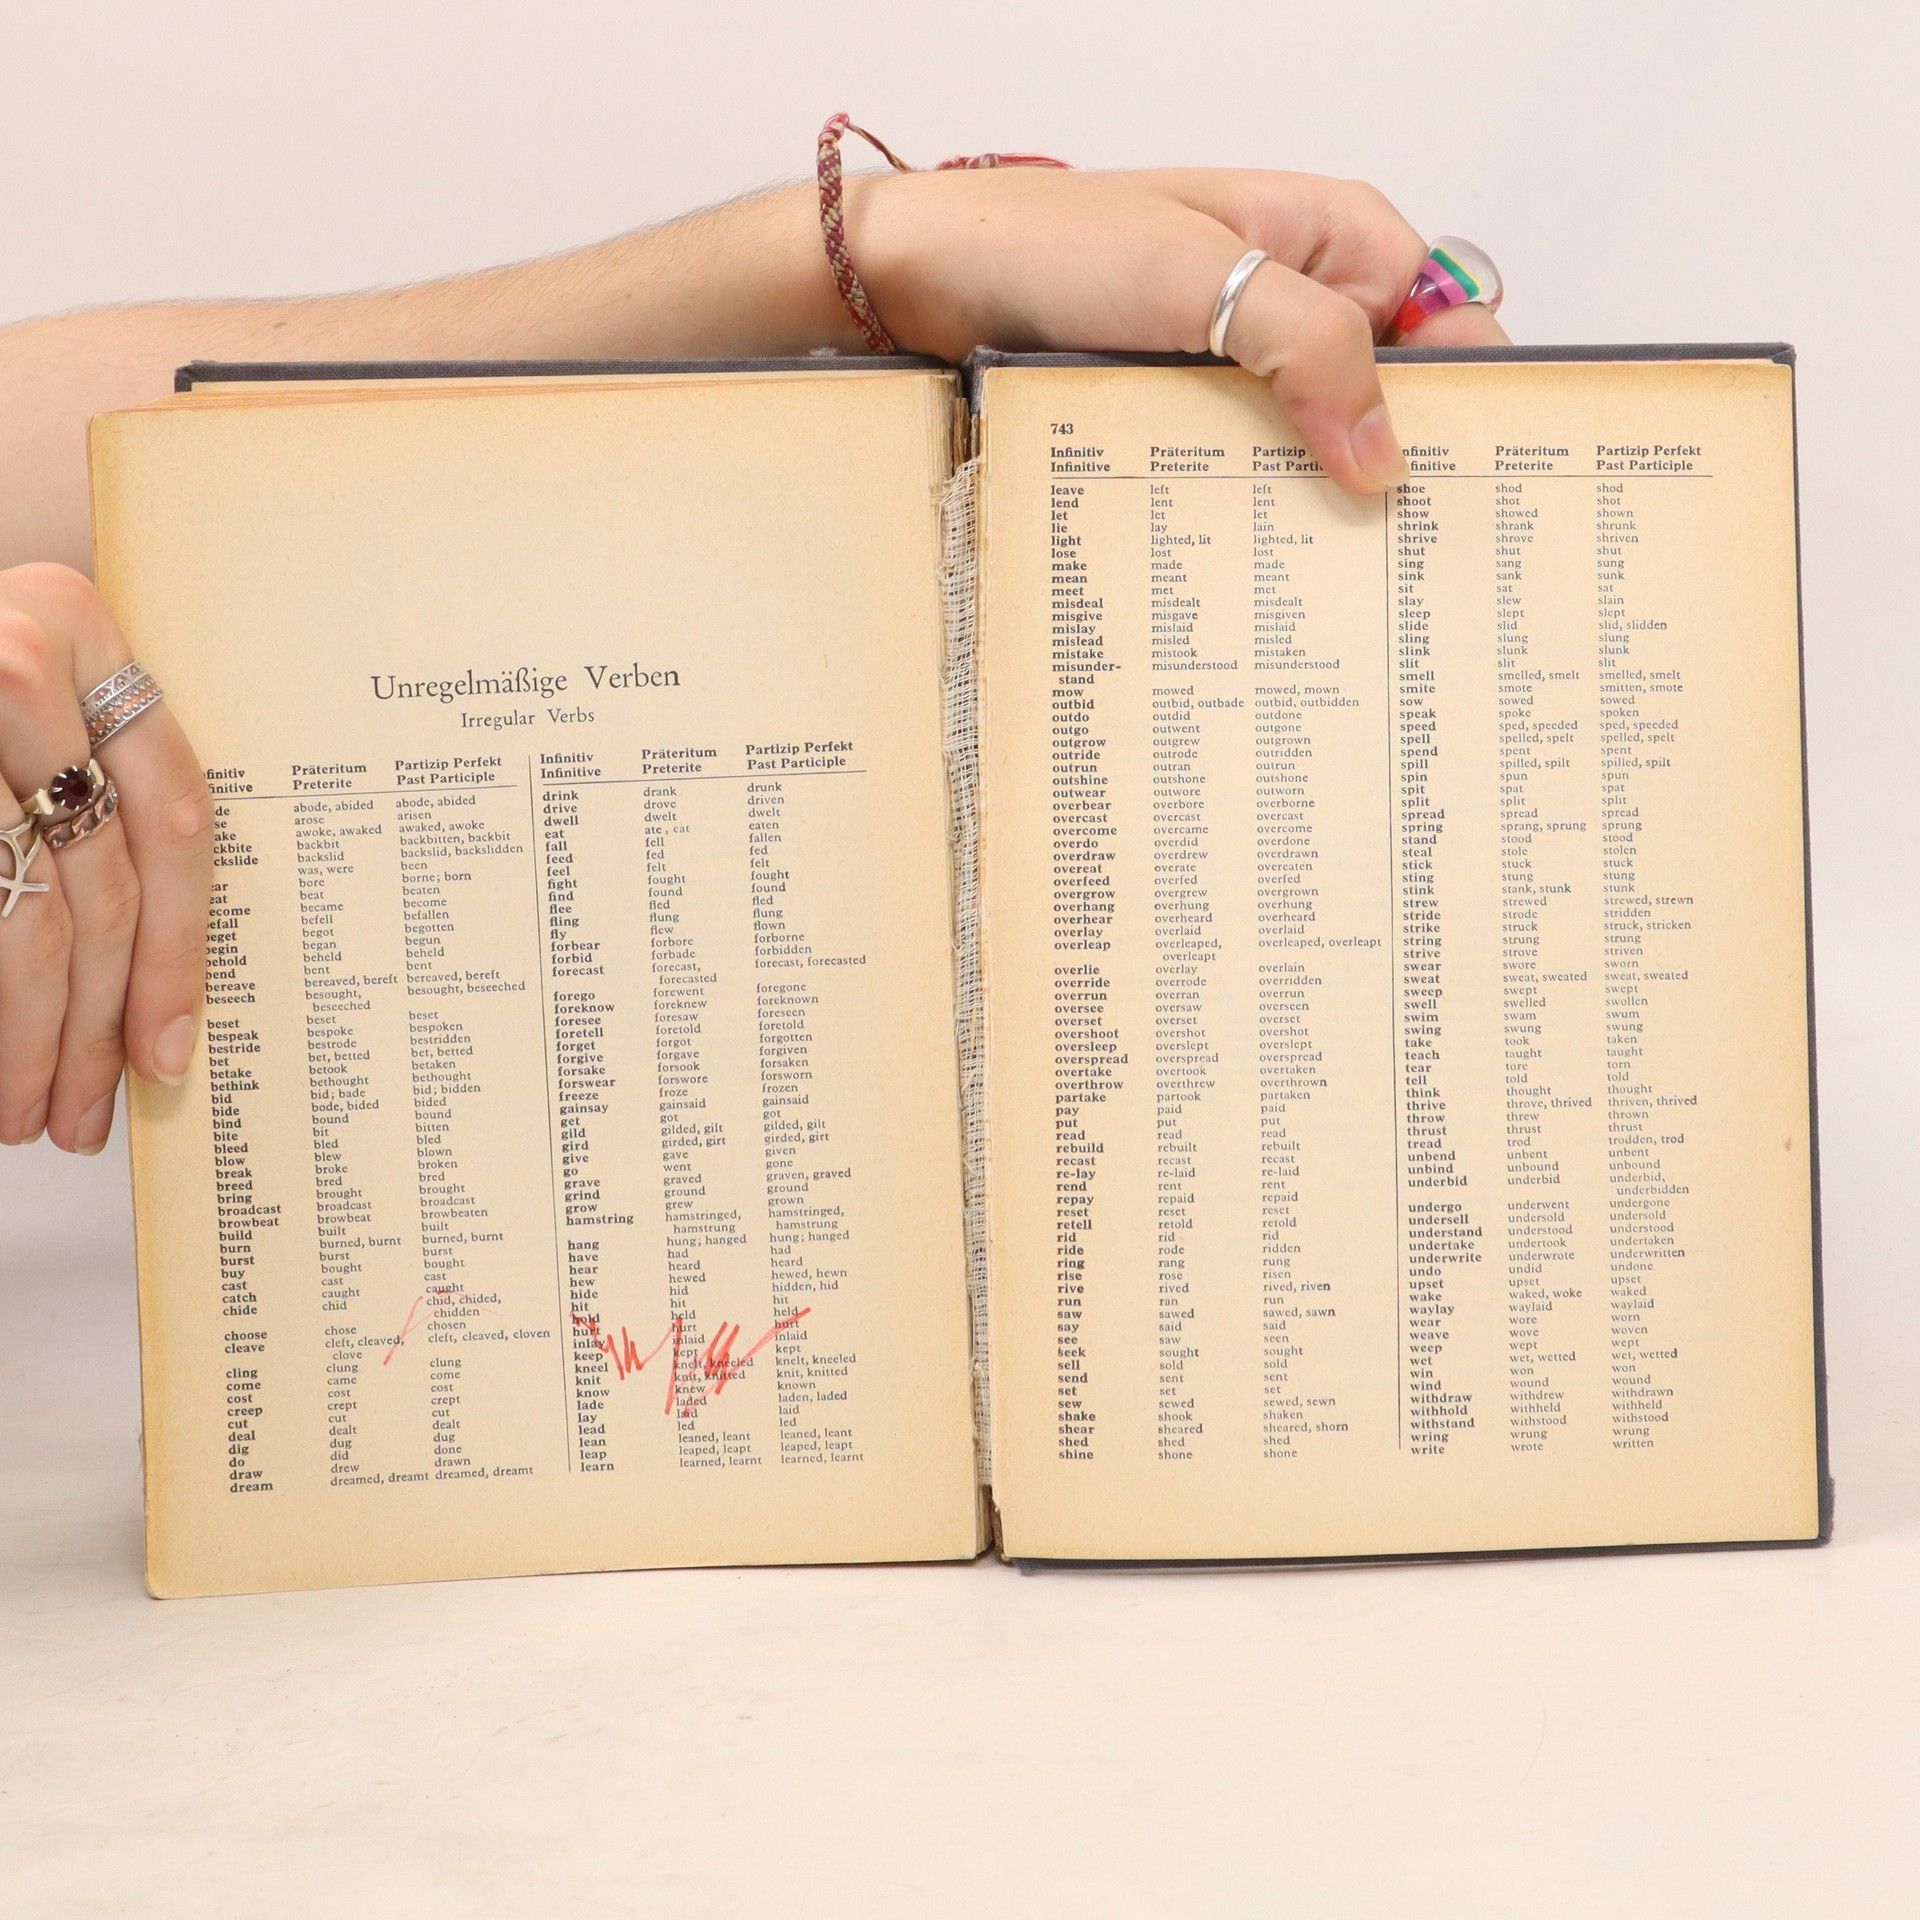 Unregelmäßige Verben
Irregular Verbs
finitiv Präteritum Partizip Perfekt
finitive Preterite Past Participle
de abode, abided abode, abided
se arose arisen
ake awoke, awaked awaked, awoke
ckbite backbit backbitten, backbit
ckslide backslid backslid, backslidden
was, were been
ear bore borne; born
eat beat beaten
ecome became become
efall befell befallen
eget begot begotten
begin began begun
behold beheld beheld
bend bent bent
bereave bereaved, bereft bereaved, bereft
beseech besought, besought, beseeched
beseeched
beset beset beset
bespeak bespoke bespoken
bestride bestrode bestridden
bet bet, betted bet, betted
betake betook betaken
bethink bethought bethought
bid bid; bade bid; bidden
bide bode, bided bided
bind bound bound
bite bit bitten
bleed bled bled
blow blew blown
break broke broken
breed bred bred
bring brought brought
broadcast broadcast broadcast
browbeat browbeat browbeaten
build built built
burn burned, burnt burned, burnt
burst burst burst
buy bought bought
cast cast cast
catch caught caught
chide chid chid, chided,
chidden
choose chose chosen
cleave cleft, cleaved, cleft, cleaved, cloven
clove
cling clung clung
come came come
cost cost cost
creep crept crept
cut cut cut
deal dealt dealt
dig dug dug
do did done
draw drew drawn
dream dreamed, dreamt dreamed, dreamt
Infinitiv Präteritum Partizip Perfekt
Infinitive Preterite Past Participle
drink drank drunk
drive drove driven
dwell dwelt dwelt
eat ate, eat eaten
fall fell fallen
feed fed fed
feel felt felt
fight fought fought
find found found
flee fled fled
fling flung flung
fly flew flown
forbear forbore forborne
forbid forbade forbidden
forecast forecast, forecast, forecasted
forecasted
forego forewent foregone
foreknow foreknew foreknown
foresee foresaw foreseen
foretell foretold foretold
forget forgot forgotten
forgive forgave forgiven
forsake forsook forsaken
forswear forswore forsworn
freeze froze frozen
gainsay gainsaid gainsaid
get got got
gild gilded, gilt gilded, gilt
gird girded, girt girded, girt
give gave given
go went gone
grave graved graven, graved
grind ground ground
grow grew grown
hamstring hamstringed, hamstringed,
hamstrung hamstrung
hang hung; hanged hung; hanged
have had had
hear heard heard
hew hewed hewed, hewn
hide hid hidden, hid
hit hit hit
hold held held
hurt hurt hurt
inlay inlaid inlaid
keep kept kept
kneel knelt, kneeled knelt, kneeled
knit knit, knitted knit, knitted
know knew known
lade laded laden, laded
lay laid laid
lead led led
lean leaned, leant leaned, leant
leap leaped, leapt leaped, leapt
learn learned, learnt learned, learnt
743
Infinitiv Präteritum Partizip
Infinitive Preterite Past Partic
leave left left
lend lent lent
let let let
lie lay lain
light lighted, lit lighted, lit
lose lost lost
make made made
mean meant meant
meet met met
misdeal misdealt misdealt
misgive misgave misgiven
mislay mislaid mislaid
mislead misled misled
mistake mistook mistaken
misunder- misunderstood misunderstood
stand
mow mowed mowed, mown
outbid outbid, outbade outbid, outbidden
outdo outdid outdone
outgo outwent outgone
outgrow outgrew outgrown
outride outrode outridden
outrun outran outrun
outshine outshone outshone
outwear outwore outworn
overbear overbore overborne
overcast overcast overcast
overcome overcame overcome
overdo overdid overdone
overdraw overdrew overdrawn
overeat overate overeaten
overfeed overfed overfed
overgrow overgrew overgrown
overhang overhung overhung
overhear overheard overheard
overlay overlaid overlaid
overleap overleaped, overleaped, overleapt
overleapt
overlie overlay overlain
override overrode overridden
overrun overran overrun
oversee oversaw overseen
overset overset overset
overshoot overshot overshot
oversleep overslept overslept
overspread overspread overspread
overtake overtook overtaken
overthrow overthrew overthrown
partake partook partaken
pay paid paid
put put put
read read read
rebuild rebuilt rebuilt
recast recast recast
re-lay re-laid re-laid
rend rent rent
repay repaid repaid
reset reset reset
retell retold retold
rid rid rid
ride rode ridden
ring rang rung
rise rose risen
rive rived rived, riven
run ran run
saw sawed sawed, sawn
say said said
see saw seen
seek sought sought
sell sold sold
send sent sent
set set set
sew sewed sewed, sewn
shake shook shaken
shear sheared sheared, shorn
shed shed shed
shine shone shone
nfinitiv Präteritum Partizip Perfekt
finitive Preterite Past Participle
shoe shod shod
shoot shot shot
show showed shown
shrink shrank shrunk
shrive shrove shriven
shut shut shut
sing sang sung
sink sank sunk
sit sat sat
slay slew slain
sleep slept slept
slide slid slid, slidden
sling slung slung
slink slunk slunk
slit slit slit
smell smelled, smelt smelled, smelt
smite smote smitten, smote
sow sowed sowed
speak spoke spoken
speed sped, speeded sped, speeded
spell spelled, spelt spelled, spelt
spend spent spent
spill spilled, spilt spilled, spilt
spin spun spun
spit spat spat
split split split
spread spread spread
spring sprang, sprung sprung
stand stood stood
steal stole stolen
stick stuck stuck
sting stung stung
stink stank, stunk stunk
strew strewed strewed, strewn
stride strode stridden
strike struck struck, stricken
string strung strung
strive strove striven
swear swore sworn
sweat sweat, sweated sweat, sweated
sweep swept swept
swell swelled swollen
swim swam swum
swing swung swung
take took taken
teach taught taught
tear tore torn
tell told told
think thought thought
thrive throve, thrived thriven, thrived
throw threw thrown
thrust thrust thrust
tread trod trodden, trod
unbend unbent unbent
unbind unbound unbound
underbid underbid underbid,
underbidden
undergo underwent undergone
undersell undersold undersold
understand understood understood
undertake undertook undertaken
underwrite underwrote underwritten
undo undid undone
upset upset upset
wake waked, woke waked
waylay waylaid waylaid
wear wore worn
weave wove woven
weep wept wept
wet wet, wetted wet, wetted
win won won
wind wound wound
withdraw withdrew withdrawn
withhold withheld withheld
withstand withstood withstood
wring wrung wrung
write wrote written